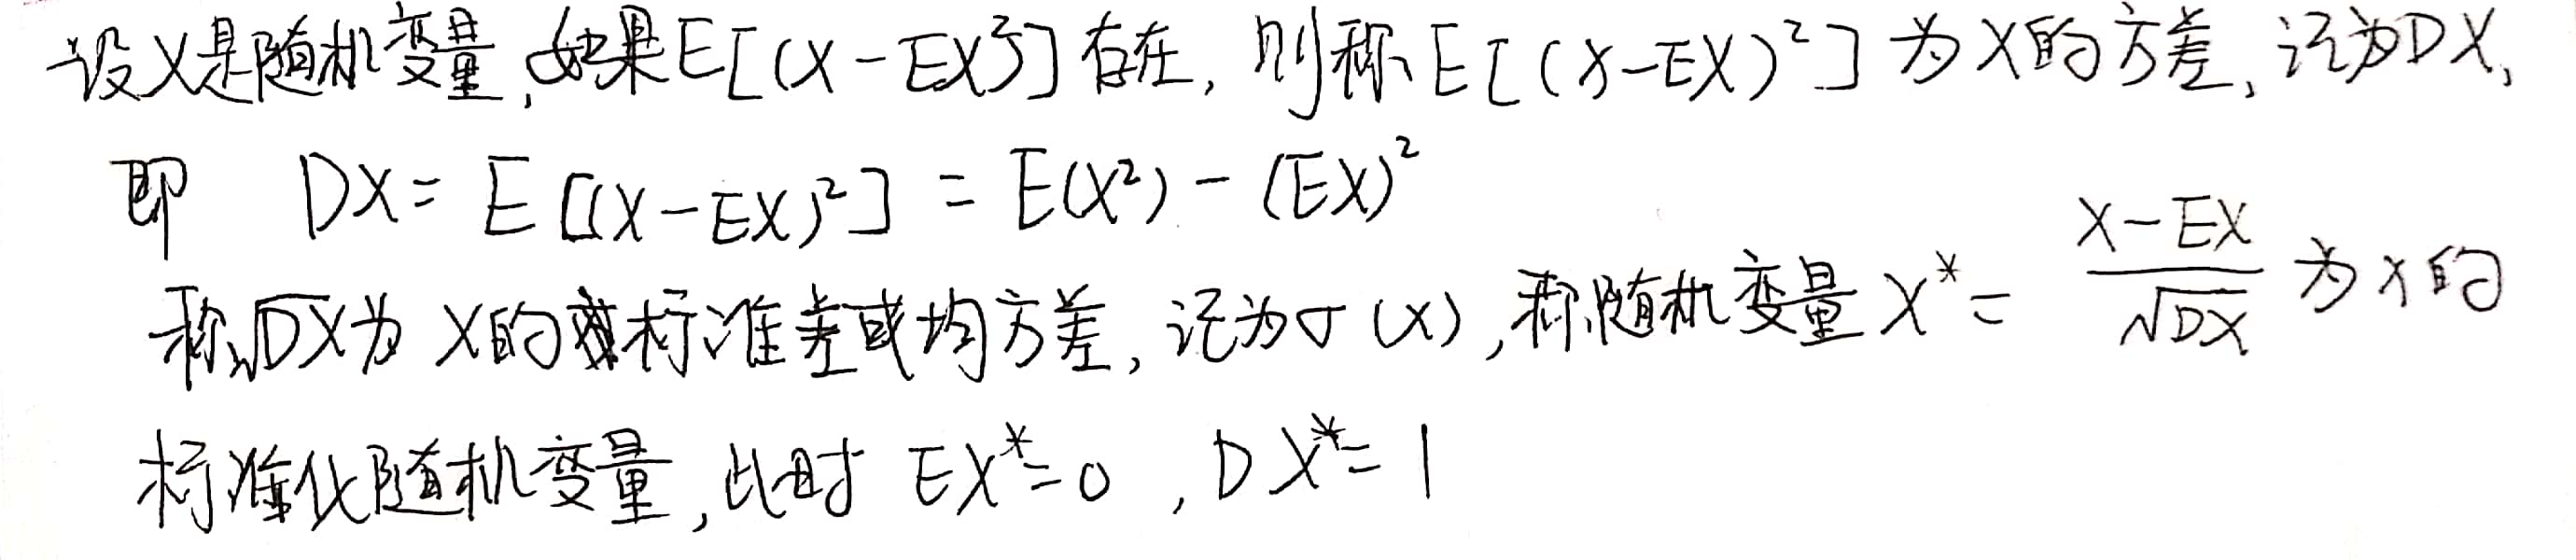 设X是随机变量,如果E[(X-EX)²]存在,则称E[(X-EX)²]为X的方差,记为DX,
即 DX=E[(X-EX)²]=E(X²)-(EX)²
称√DX为X的标准差或均方差,记为σ(X),称随机变量X*=(X-EX)/√DX为X的
标准化随机变量,此时EX*=0,DX*=1